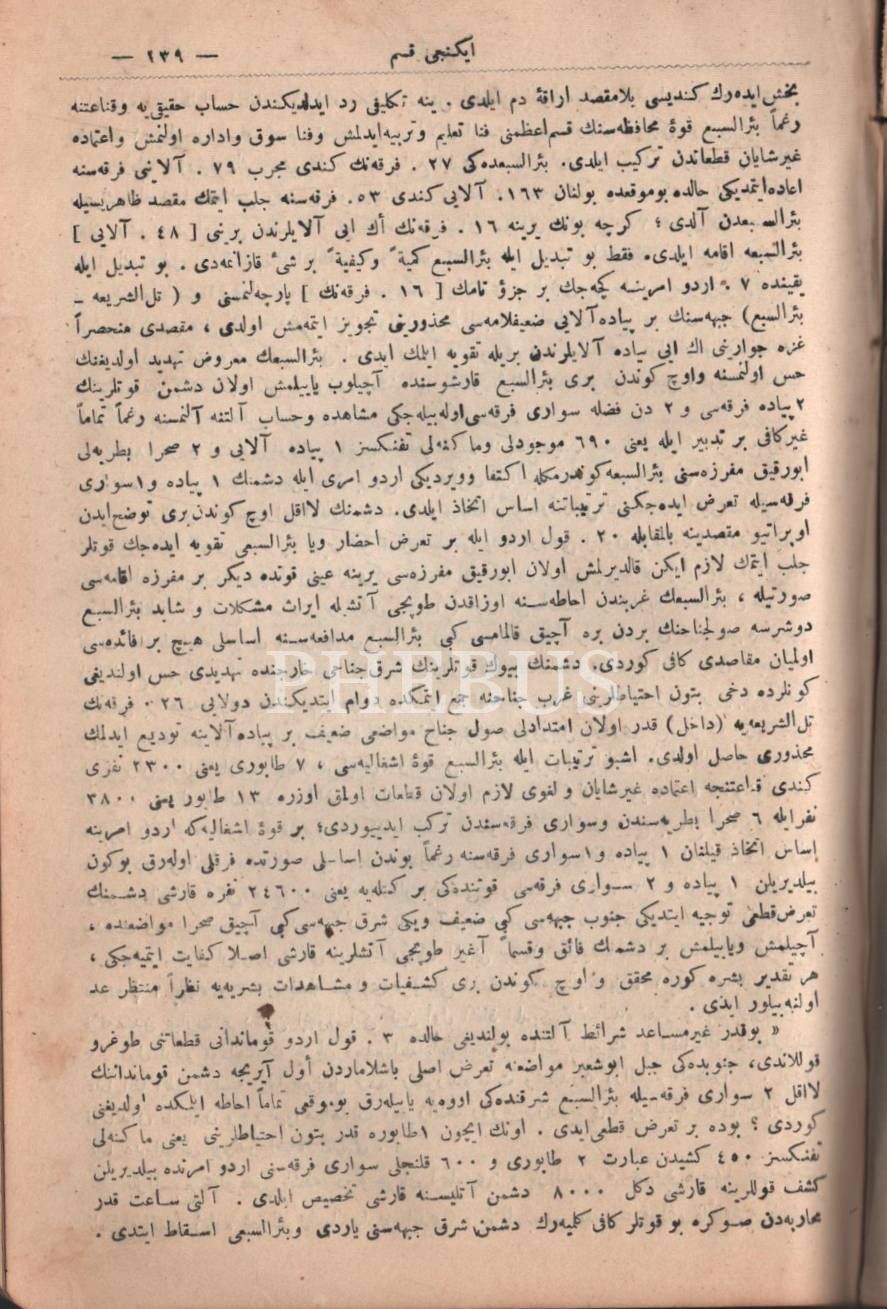 ایكنجی قسم
— ٢٣٩ —
بخش ایده‌رك كندیسی بلامقصد اراقۀ دم ایلدی . ینه تكلیفی رد ایدلدیكندن حساب حقیقی‌یه وقناعتنه
رغماً بئرالسبع قوۀ محافظه‌سنك قسم‌اعظمنی فنا تعلیم وتربیه‌ایدلمش وفنا سوق واداره اولنمش واعتماده
غیرشایان قطعاتدن تركیب ایلدی. بئرالسبعده‌كی ٢٧ . فرقه‌نك كندی مجرب ٧٩ . آلاینی فرقه‌سنه
اعاده‌ایتمدیكی حالده بوموقعده بولنان ١٦٣. آلایی كندی ٥٣. فرقه‌سنه جلب ایتمك مقصد ظاهریسیله
بئرالسبعدن آلدی ؛ كرچه بونك یرینه ١٦ . فرقه‌نك أك ایی آلایلرندن برینی [ ٤٨ . آلایی ]
بئرالسبعه اقامه ایلدی. فقط بو تبدیل ایله بئرالسبع كمیةً وكیفیةً بر شیء قازانمه‌دی . بو تبدیل ایله
یقینده ٧ . اردو امرینه كچه‌جك بر جزؤ تامك [ ١٦ . فرقه‌نك ] پارچه‌لنمسنی و ( تل‌الشریعه ـ
بئرالسبع) جبهه‌سنك بر پیاده آلایی ضعیفلامه‌سی محذورینی تجویز ایتمه‌مش اولدی ، مقصدی منحصراً
غزه جوارینی اك ایی پیاده آلایلرندن بریله تقویه ایلمك ایدی . بئرالسبعك معروض تهدید اولدیغنك
حس اولنمسنه واوچ كوندن بری بئرالسبع قارشوسنده آچیلوب یاپیلمش اولان دشمن قوتلرینك
٢ پیاده فرقه‌سی و ٢ دن فضله سواری فرقه‌سی‌اوله‌بیله‌جكی مشاهده وحساب آلتنه آلنمسنه رغماً تماماً
غیركافی بر تدبیر ایله یعنی ٦٩٠ موجودلی وماكنه‌لی تفنكسز ١ پیاده آلایی و ٢ صحرا بطریه‌لی
ابورقیق مفرزه‌سنی بئرالسبعه‌كوندرمكله اكتفا وویردیكی اردو امری ایله دشمنك ١ پیاده و١سواری
فرقه‌سیله تعرض ایده‌جكنی ترتیباتنه اساس اتخاذ ایلدی. دشمنك لااقل اوچ كوندن‌بری توضح‌ایدن
اوپراتیو مقصدینه بالمقابله ٢٠ . قول اردو ایله بر تعرض احضار ویا بئرالسبعی تقویه ایده‌جك قوتلر
جلب ایتمك لازم ایكن قالدیرلمش اولان ابورقیق مفرزه‌سی یرینه عینی قوتده دیكر بر مفرزه اقامه‌سی
صورتیله ، بئرالسبعك غربندن احاطه‌سنه اوزاقدن طوپجی آتشیله ایراث مشكلات و شاید بئرالسبع
دوشرسه صولجناحنك بردن بره آچیق قالمامسی كبی بئرالسبع مدافعه‌سنه اساسلی هیچ بر فائده‌سی
اولمیان مقاصدی كافی كوردی. دشمنك بیوك قوتلرینك شرق جناحی خارجنده تهدیدی حس اولندیغی
كونلرده دخی بتون احتیاطلرینی غرب جناحنه جمع ایتمكده دوام ایتدیكندن دولایی ٢٦ . فرقه‌نك
تل‌الشریعه‌یه (داخل) قدر اولان امتدادلی صول جناح مواضعی ضعیف بر پیاده آلاینه تودیع ایدلمك
محذوری حاصل اولدی. اشبو ترتیبات ایله بئرالسبع قوۀ اشغالیه‌سی ، ٧ طابوری یعنی ٢٣٠٠ نفری
كندی قناعتنجه اعتماده غیرشایان و لغوی لازم اولان قطعات اولمق اوزره ١٣ طابور یعنی ٣٨٠٠
نفرایله ٦ صحرا بطریه‌سندن وسواری فرقه‌سندن تركب ایدییوردی؛ بر قوۀ اشغالیه‌كه اردو امرینه
اساس اتخاذ قیلنان ١ پیاده و١سواری فرقه‌سنه رغماً بوندن اساسلی صورتده فرقلی اوله‌رق بوكون
بیلدیریلن ١ پیاده و ٢ سواری فرقه‌سی قوتنده‌كی بر كتله‌یه یعنی ٢٤٦٠٠ نفره قارشی دشمنك
تعرض‌قطعی توجیه ایتدیكی جنوب جبهه‌سی كبی ضعیف ویكی شرق جبهه‌سی‌كبی آچیق صحرا مواضعنده ،
آچیلمش ویاپیلمش بر دشمنك فائق وقسماً آغیر طوپجی آتشلرینه قارشی اصلا كفایت ایتمیه‌جكی ،
هر تقدیر بشره كوره محقق و اوچ كوندن بری كشفیات و مشاهدات بشریه‌یه نظراً منتظر عد
اولنه‌بیلور ایدی .
« بوقدر غیرمساعد شرائط آلتنده بولندیغی حالده ٣ . قول اردو قوماندانی قطعاتنی طوغرو
قوللاندی، جنوبده‌كی جبل ابوشعیر مواضعنه تعرض اصلی باشلامازدن أول آیریجه دشمن قوماندانك
لااقل ٢ سواری فرقه‌سیله بئرالسبع شرقنده‌كی اووه‌یه یاپیله‌رق بوموقعی تماماً احاطه ایلمكده اولدیغنی
كوردی ؟ بوده بر تعرض قطعی‌ایدی . اونك ایچون ١طابوره قدر بتون احتیاطلرینی یعنی ماكنه‌لی
تفنكسز ٤٥٠ كشیدن عبارت ٢ طابوری و ٦٠٠ قلنجلی سواری فرقه‌سنی اردو امرنده بیلدیریلن
كشف قوللرینه قارشی دكل ٨٠٠٠ دشمن آتلیسنه قارشی تخصیص ایلدی . آلتی ساعت قدر
محاربه‌دن صوكره بو قوتلر كافی كلمیه‌رك دشمن شرق جبهه‌سنی یاردی وبئرالسبعی اسقاط ایتدی .
PHEBUS